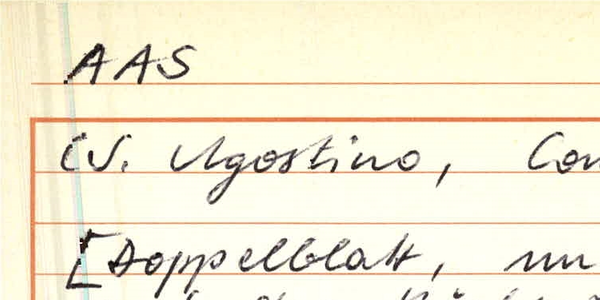 AAS
(V. Agostino, Con
[Doppelblatt, nu